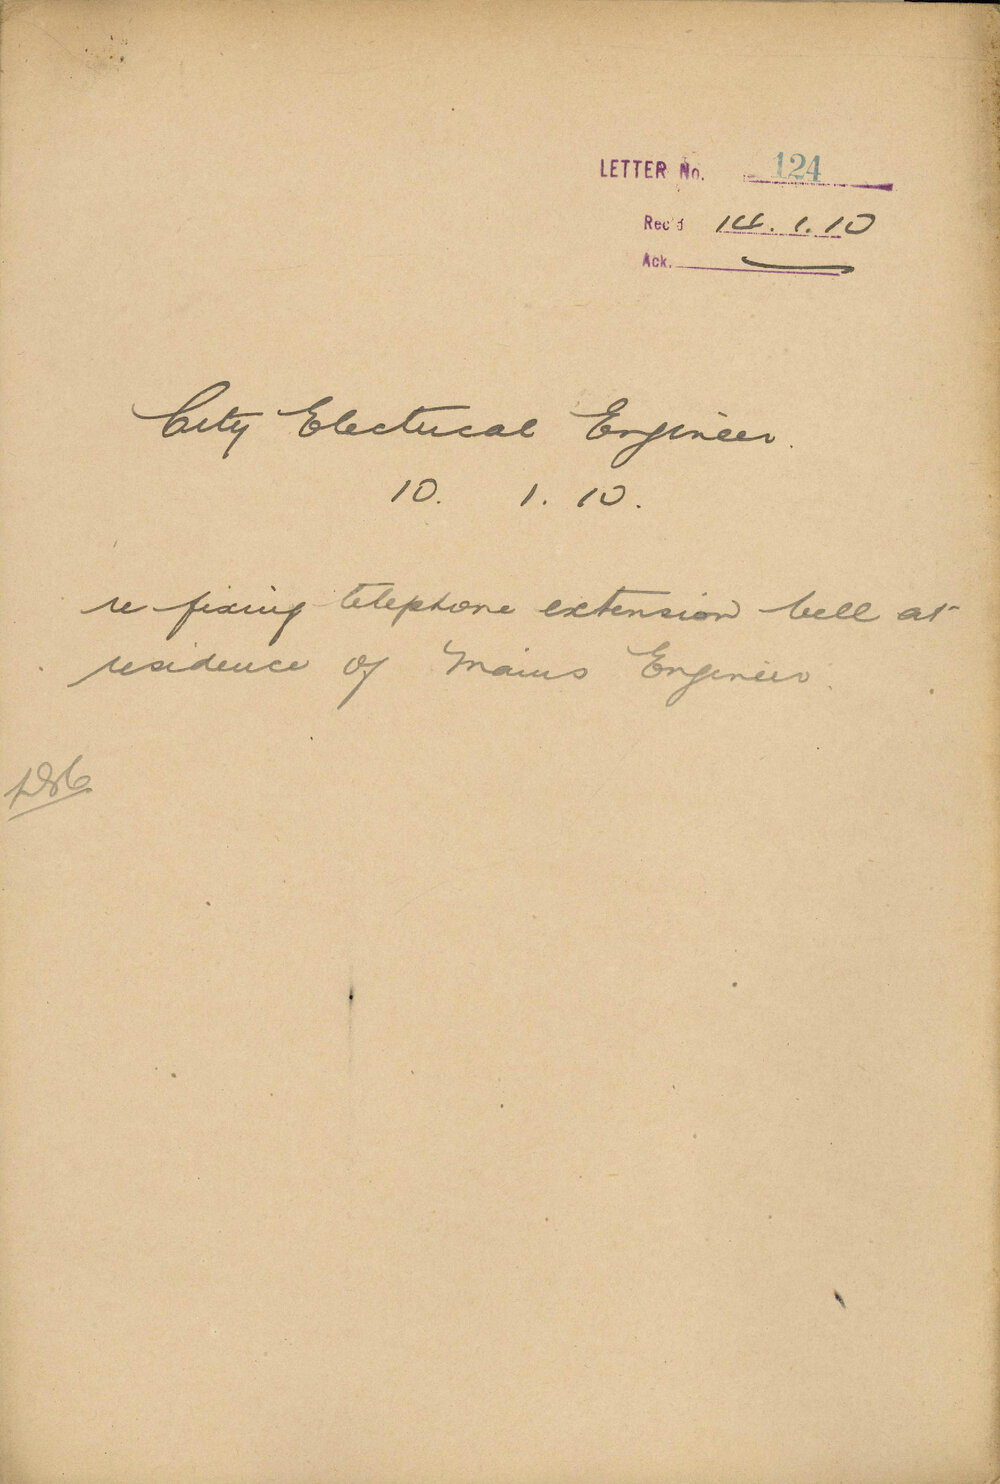 LETTER No. 124
Rec'd 14.1.10
Ack.
City Electrical Engineer.
10. 1. 10.
re fixing telephone extension bell at
residence of Mains Engineer.